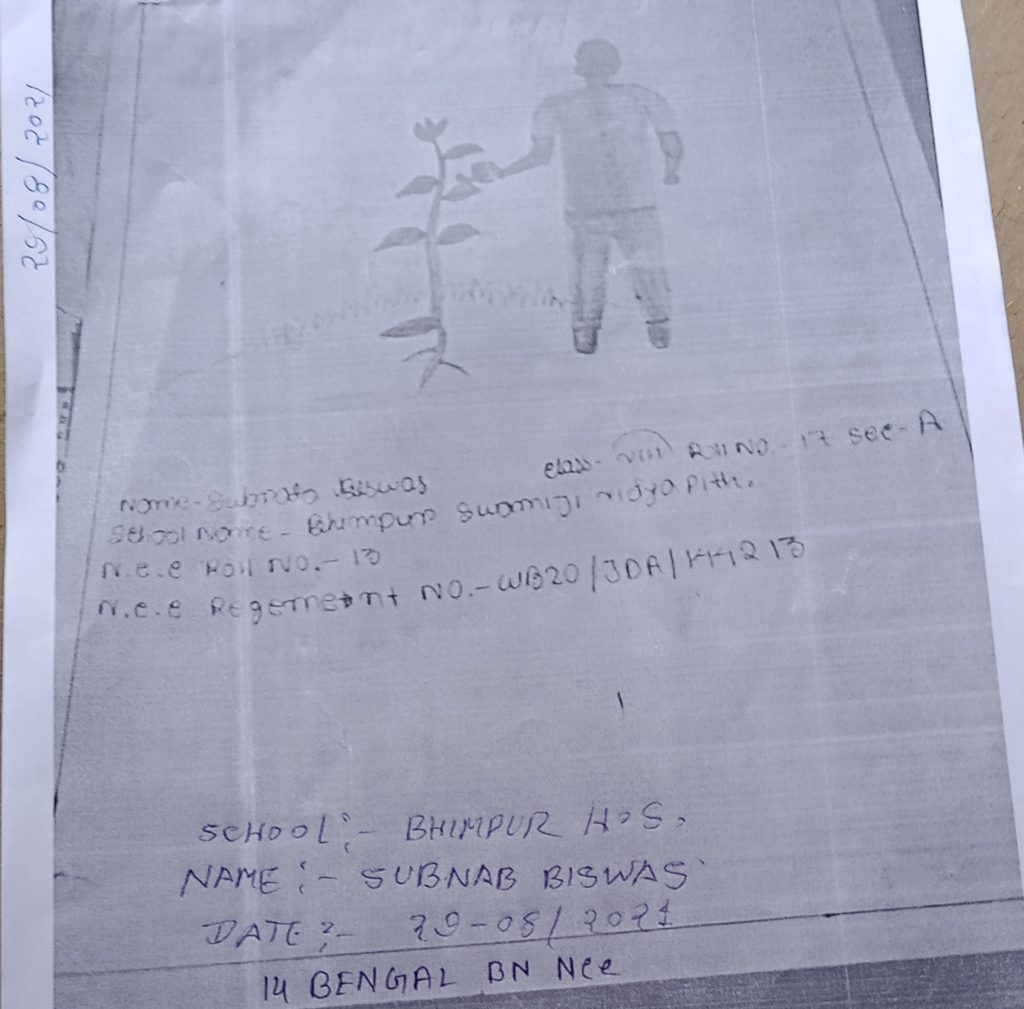 29/08/2021
Name - Subrata Biswas class - VIII Roll No. - 17 sec - A
School Name - Bhimpur Swamiji vidya Pith.
N.c.c Roll No. - 13
N.c.c Regemetnt NO. - WB20/JDA/144213
SCHOOL :- BHIMPUR H.S.
NAME :- SUBNAB BISWAS
DATE :- 29-08/2021
14 BENGAL BN Ncc